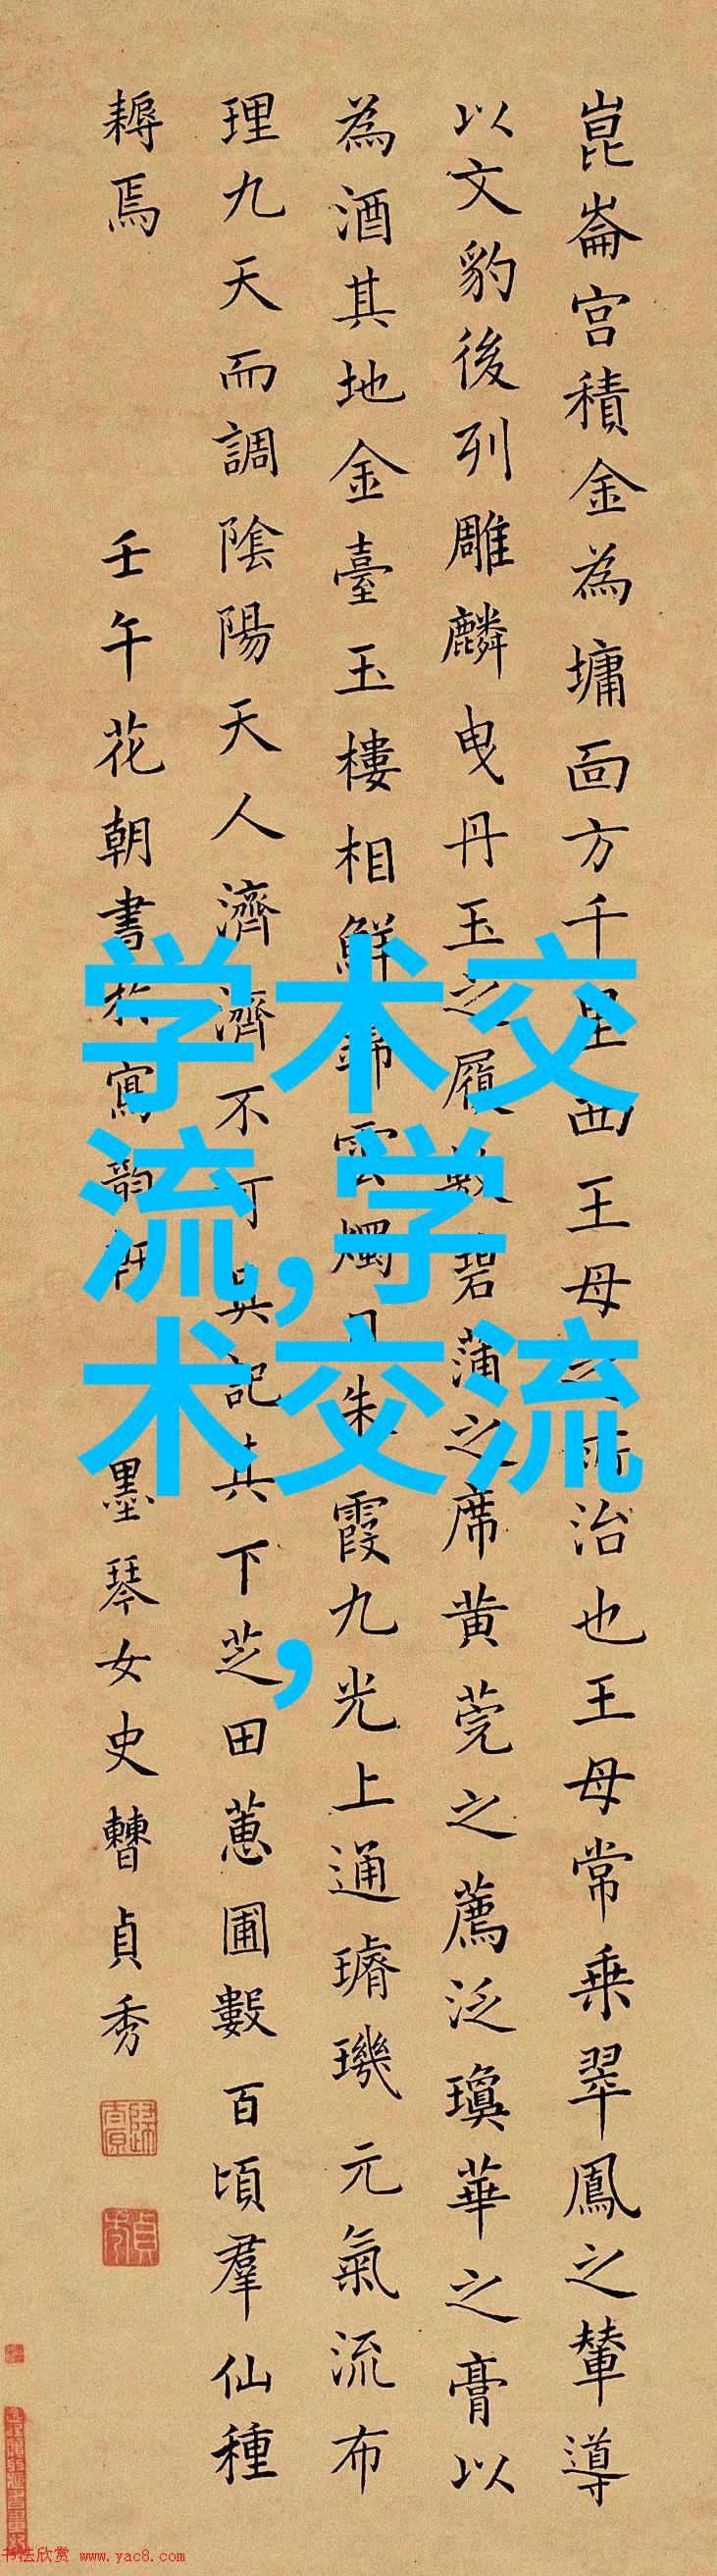 崑崙宮積金為墉面方千里西王母之所治也王母常乗翠鳳之輦導
以文豹後列雕麟曳丹玉之履敷碧蒲之席黄莞之薦泛瓊華之膏以
為酒其地金臺玉樓相鮮雲燭日朱霞九光上通璿璣元氣流布
理九天而調陰陽天人濟濟不可具記其下芝田蕙圃數百頃羣仙種
耨焉
壬午花朝書於寫韻軒
墨琴女史曹貞秀
学术交
流,学
术交流
,
书法欣赏 www.yac8.com